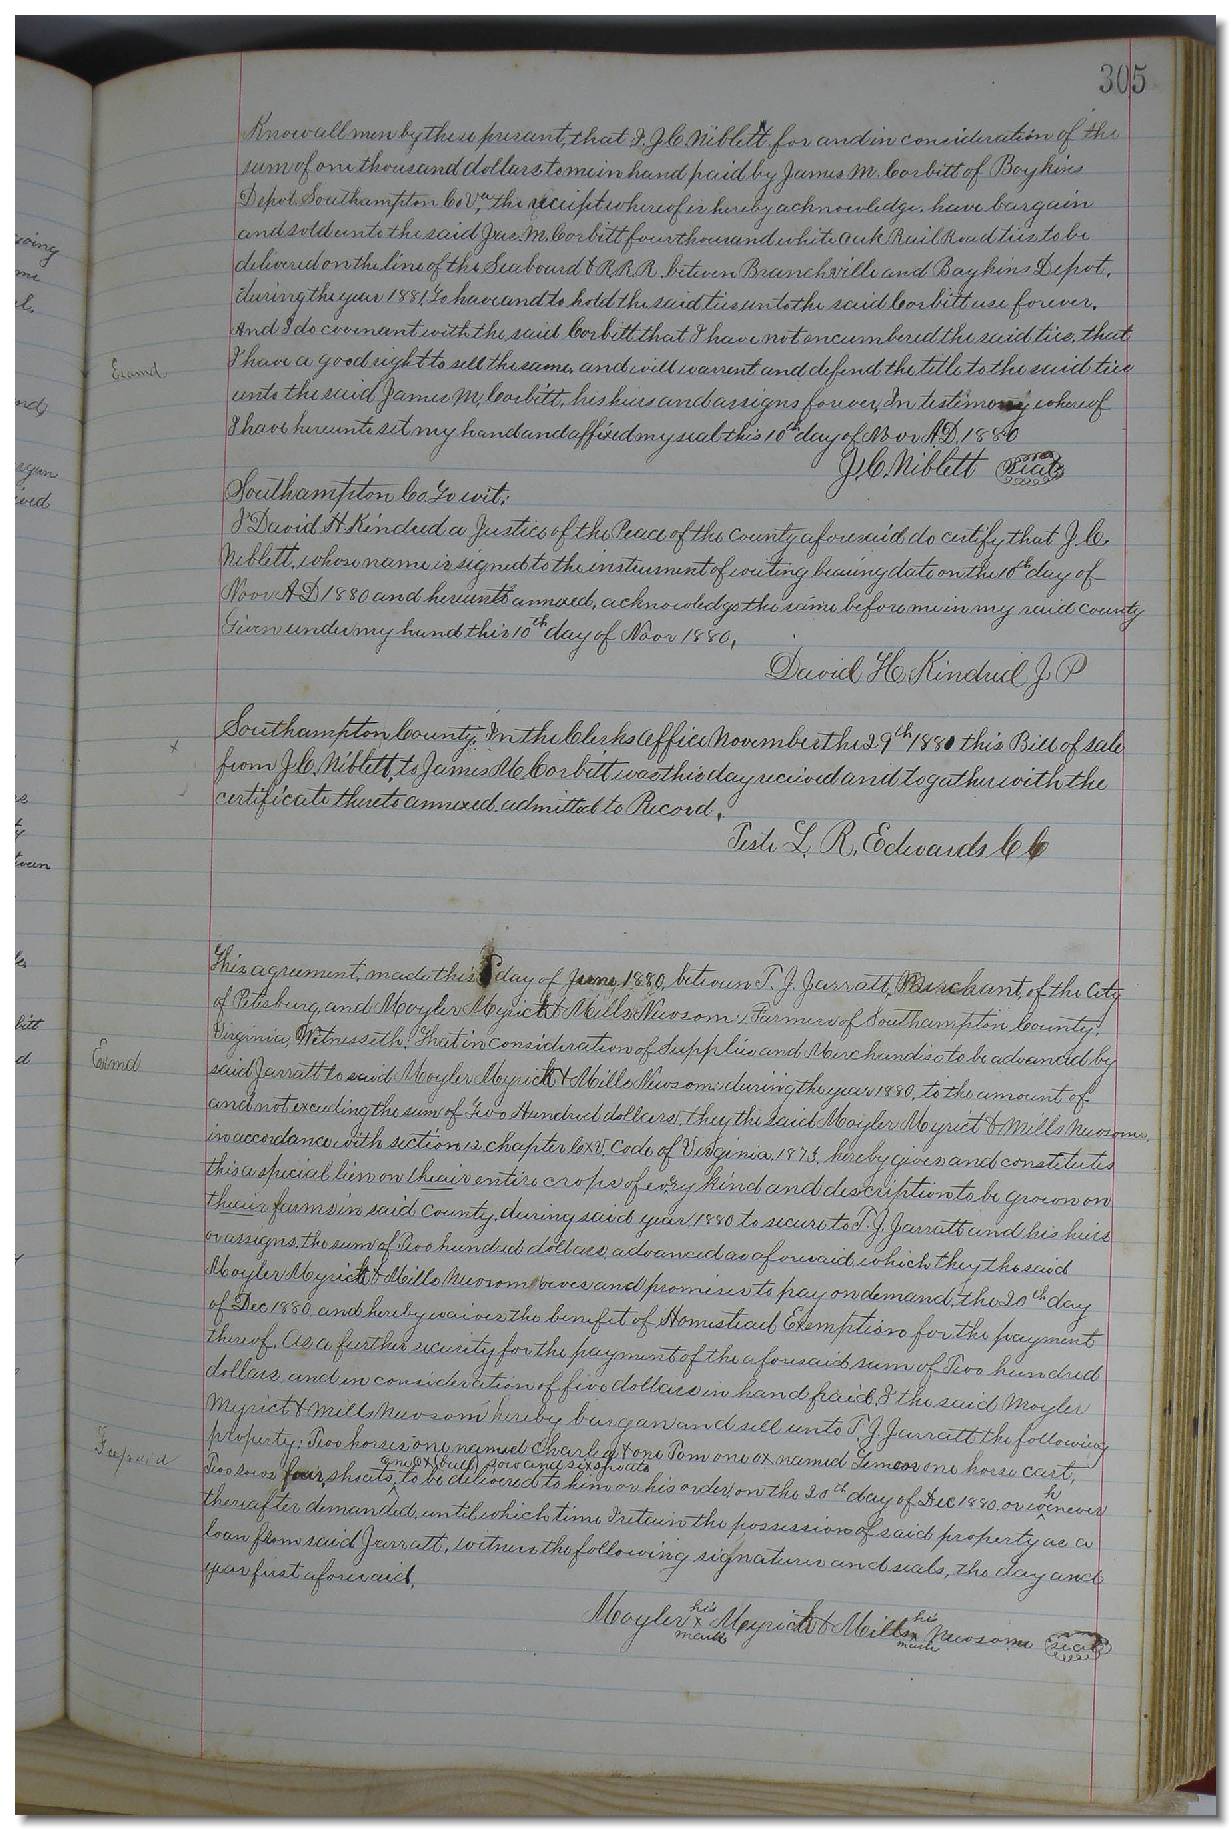 305
Know all men by these present, that I, J. C. Niblett for and in consideration of the
sum of one thousand dollars to me in hand paid by James M. Corbitt of Boykins
Depot Southampton Co Va, the receipt whereof is hereby acknowledge, have bargain
and sold unto the said Jas. M. Corbitt four thousand white oak Rail Road ties to be
delivered on the line of the Seaboard & R.R.R. between Branchville and Boykins Depot,
during the year 1881, To have and to hold the said ties unto the said Corbitt use forever.
And I do covenant with the said Corbitt that I have not encumbered the said ties, that
Examd
I have a good right to sell the same, and will warrent and defend the title to the said ties
unto the said James M. Corbitt, his heirs and assigns forever, In testimony whereof
I have hereunto set my hand and affixed my seal this 10th day of Novr A.D. 1880
J. C. Niblett seal
Southampton Co. To wit:
I David H. Kindred a Justice of the Peace of the county aforesaid do certify that J. C.
Niblett, whose name is signed to the instrument of writing bearing date on the 10th day of
Novr A D 1880 and hereunto annexed, acknowledge the same before me in my said county
Given under my hand this 10th day of Novr 1880,
David H. Kindred J. P
Southampton County, In the Clerks Office November the 29th 1880 this Bill of sale
from J. C. Niblett, to James M. Corbitt was this day received and togather with the
certificate thereto annexed admitted to Record.
Teste L. R. Edwards C C
This agreement, made this day of June, 1880, between T. J. Jarratt, Merchant, of the City
of Petersburg, and Moyler Myrick & Mills Newsom, Farmers of Southampton County,
Virginia, Witnesseth: That in consideration of Supplies and Merchandise to be advanced by
Examd
said Jarratt to said Moyler Myrick & Mills Newsom during the year 1880, to the amount of
and not exceeding the sum of Two Hundred dollars, they the said Moyler Myrict & Mills Newsome,
in accordance with section 12 chapter CXV, Code of Virginia, 1873, hereby gives and constitutes
this a special lien on their entire crops of every kind and description to be grown on
their farms in said county, during said year 1880 to secure to T. J. Jarratt and his heirs
or assigns, the sum of Two hundred dollars, advanced as aforesaid, which they the said
Moyler Myrick & Mills Newsom owes and promises to pay on demand, the 20th day
of Dec 1880 and hereby waives the benefit of Homestead Exemptions for the payment
thereof. As a further security for the payment of the aforesaid sum of Two hundred
dollars, and in consideration of five dollars in hand paid, I the said Moyler
Myrict & Mills Newsom hereby bargan and sell unto T. J. Jarratt the following
property: Two horses one named Charley & one Tom one ox named one horse cart,
one ox (bull) sow and six shoats
Two sows four shoats, to be delivered to him or his order on the 20th day of Dec 1880, or whenever
thereafter demanded, until which time I retain the possession of said property as a
loan from said Jarratt, witness the following signatures and seals, the day and
year first aforesaid,
his his
Moyler x Myrick & Mills x Newsom seal
mark mark